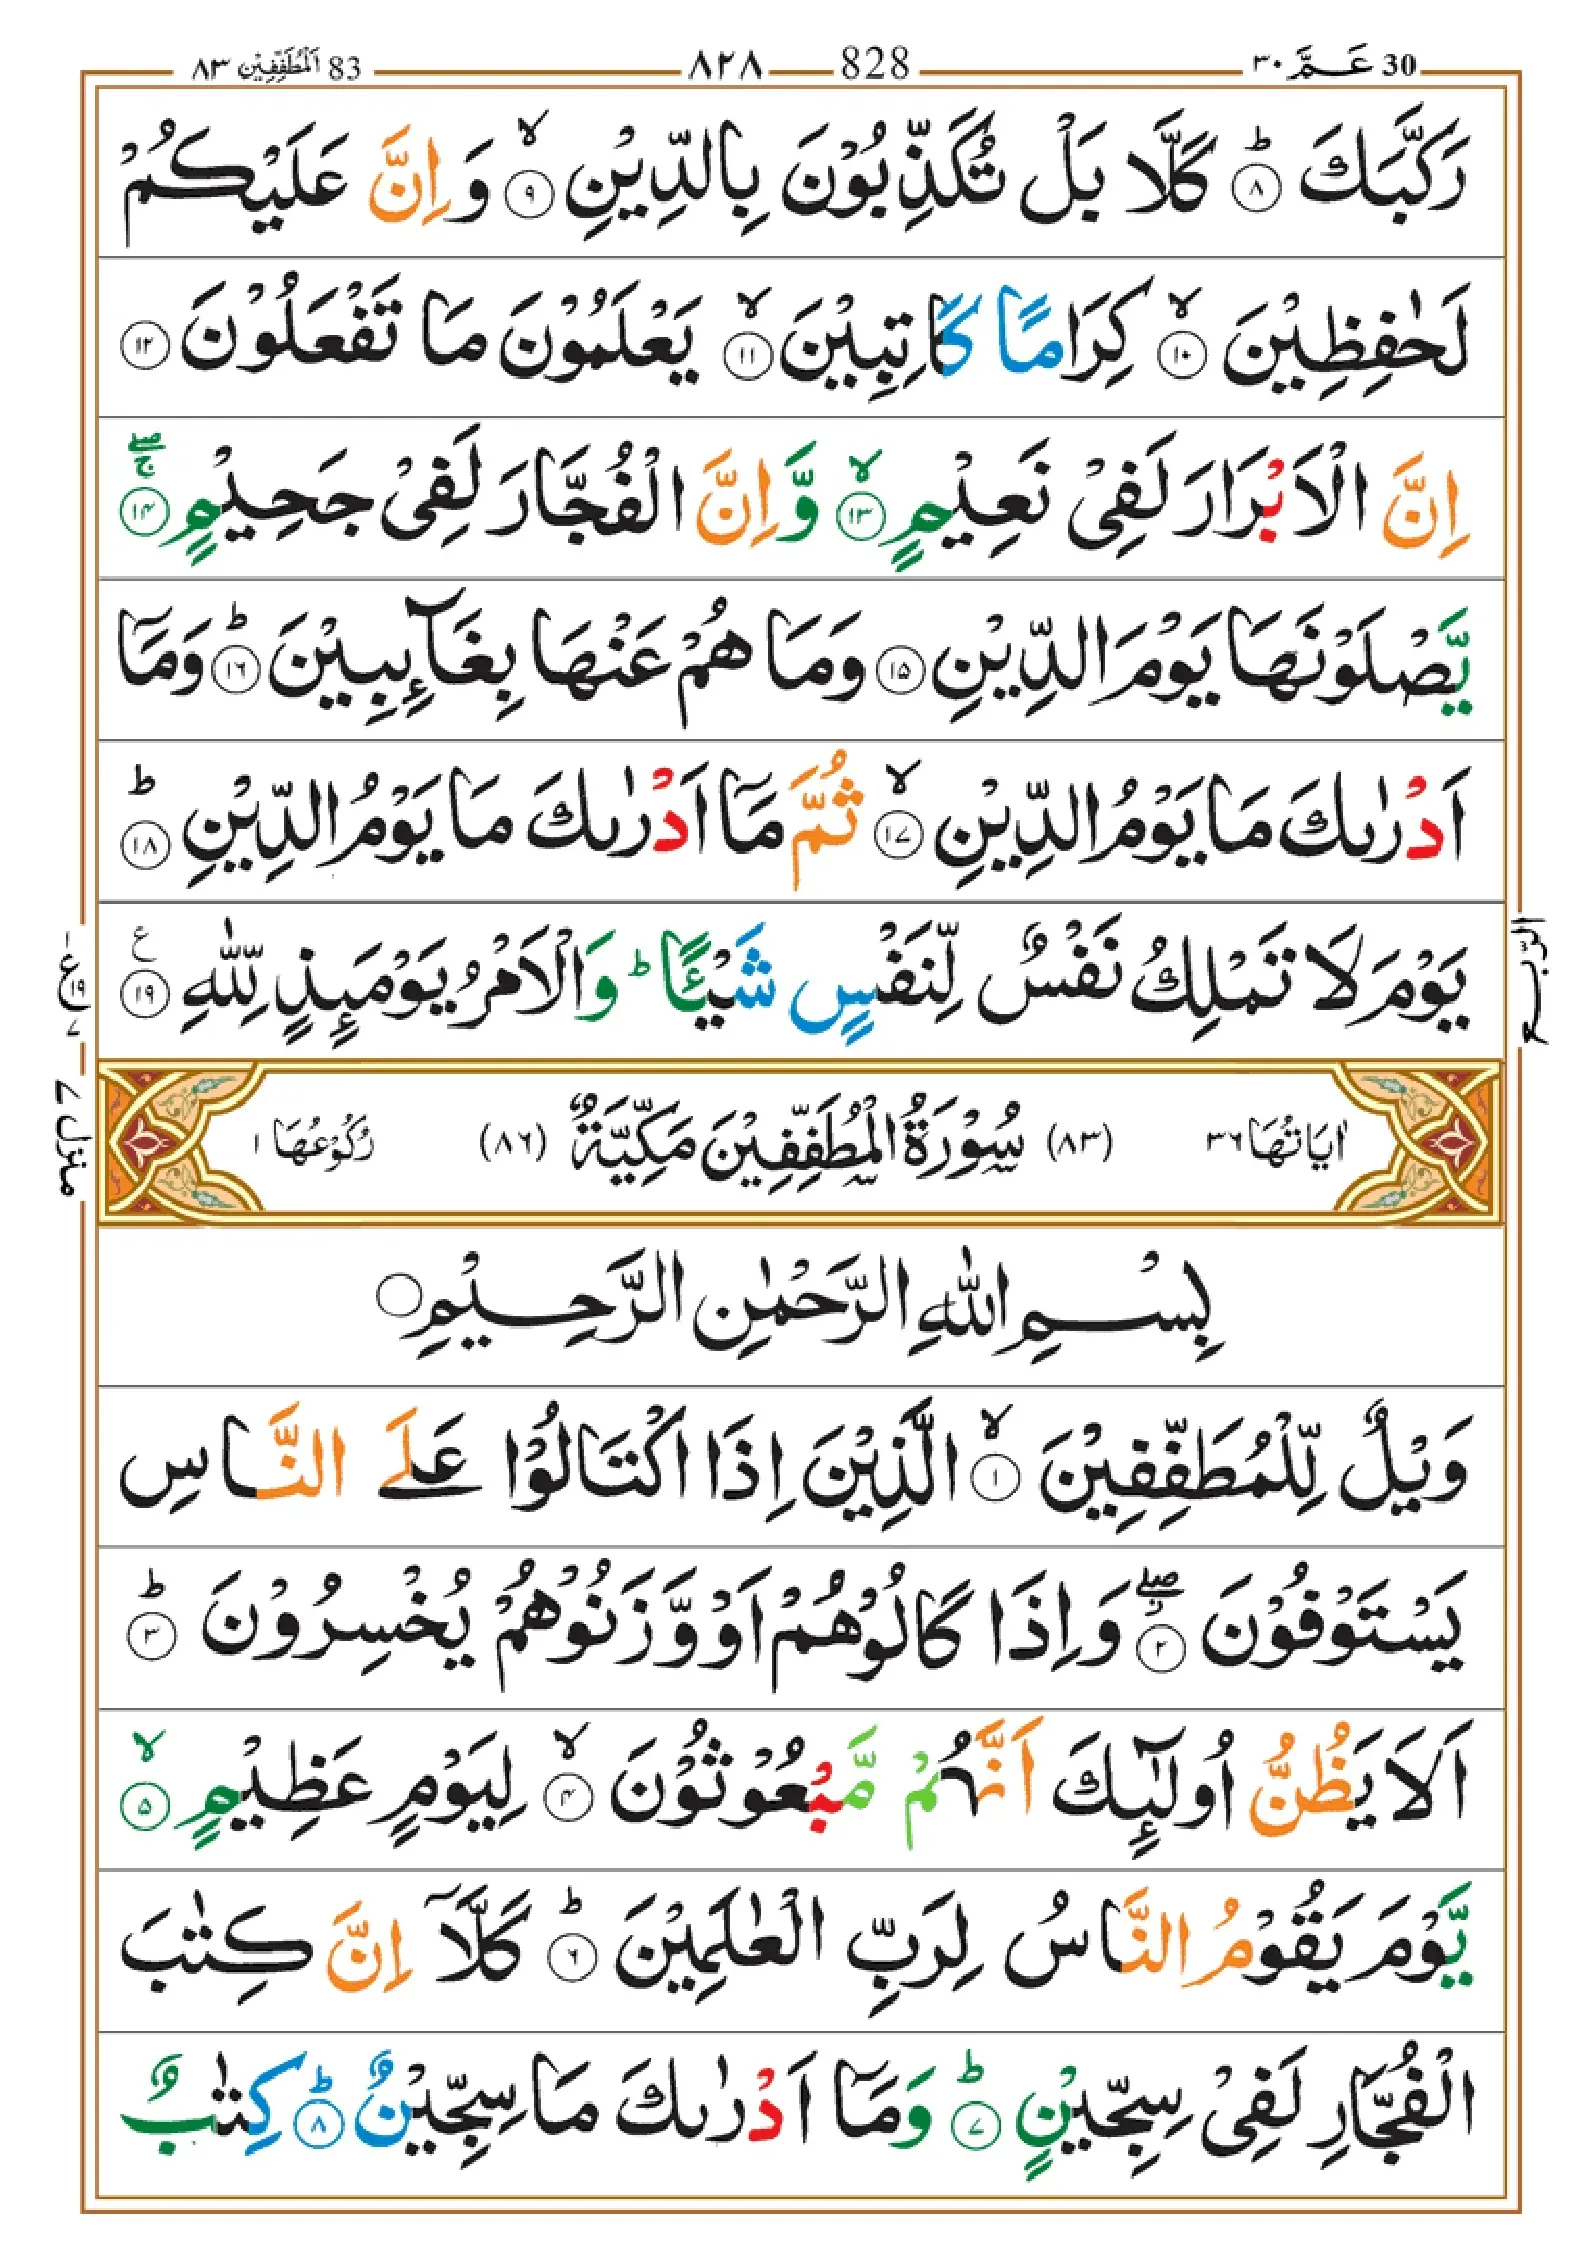 30 عَـمَّ ٣٠
828 ٨٢٨
83 اَلْمُطَفِّفِيْن ٨٣
رَكَّبَكَ ؕ﴿۸﴾ كَلَّا بَلْ تُكَذِّبُوْنَ بِالدِّيْنِ ۙ﴿۹﴾ وَ اِنَّ عَلَيْكُمْ
لَحٰفِظِيْنَ ۙ﴿۱۰﴾ كِرَامًا كَاتِبِيْنَ ۙ﴿۱۱﴾ يَعْلَمُوْنَ مَا تَفْعَلُوْنَ ﴿۱۲﴾
اِنَّ الْاَبْرَارَ لَفِىْ نَعِيْمٍ ۙ﴿۱۳﴾ وَّ اِنَّ الْفُجَّارَ لَفِىْ جَحِيْمٍ ۚۖ﴿۱۴﴾
يَّصْلَوْنَهَا يَوْمَ الدِّيْنِ ﴿۱۵﴾ وَمَا هُمْ عَنْهَا بِغَآئِبِيْنَ ؕ﴿۱۶﴾ وَمَاۤ
اَدْرٰىكَ مَا يَوْمُ الدِّيْنِ ۙ﴿۱۷﴾ ثُمَّ مَاۤ اَدْرٰىكَ مَا يَوْمُ الدِّيْنِ ؕ﴿۱۸﴾
يَوْمَ لَا تَمْلِكُ نَفْسٌ لِّنَفْسٍ شَيْئًا ؕ وَالْاَمْرُ يَوْمَئِذٍ لِّلّٰهِ ﴿۱۹﴾ ع
الرّبع
ع ۱۹ ۷
منزل ۷
اٰيَاتُهَا ٣٦ (٨٣) سُوْرَةُ الْمُطَفِّفِيْنَ مَكِّيَّةٌ (٨٦) رُكُوْعُهَا ١
بِسْمِ اللّٰهِ الرَّحْمٰنِ الرَّحِيْمِ
وَيْلٌ لِّلْمُطَفِّفِيْنَ ۙ﴿۱﴾ الَّذِيْنَ اِذَا اكْتَالُوْا عَلَى النَّاسِ
يَسْتَوْفُوْنَ ۖ﴿۲﴾ وَاِذَا كَالُوْهُمْ اَوْ وَّزَنُوْهُمْ يُخْسِرُوْنَ ؕ﴿۳﴾
اَلَا يَظُنُّ اُولٰٓئِكَ اَنَّهُمْ مَّبْعُوْثُوْنَ ۙ﴿۴﴾ لِيَوْمٍ عَظِيْمٍ ۙ﴿۵﴾
يَّوْمَ يَقُوْمُ النَّاسُ لِرَبِّ الْعٰلَمِيْنَ ؕ﴿۶﴾ كَلَّاۤ اِنَّ كِتٰبَ
الْفُجَّارِ لَفِىْ سِجِّيْنٍ ؕ﴿۷﴾ وَمَاۤ اَدْرٰىكَ مَا سِجِّيْنٌ ؕ﴿۸﴾ كِتٰبٌ